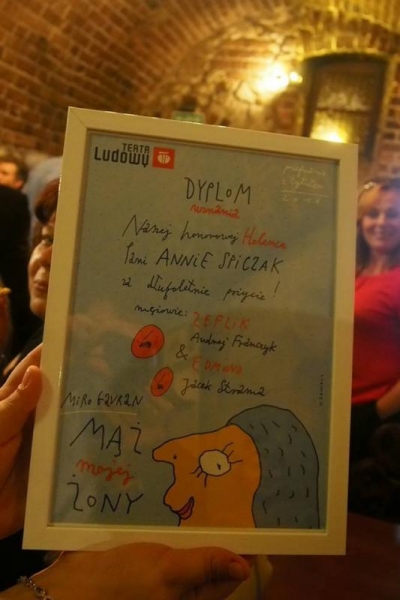 TEATR
LUDOWY
DYPLOM
uznania
Naszej honorowej Helence
Pani ANNIE SPICZAK
za długoletnie pożycie!
mężowie: ZEFLIK
Andrzej Franczyk
& EDMUND
Jacek Strama
MIRO GAVRAN
MĄŻ
mojej
ŻONY